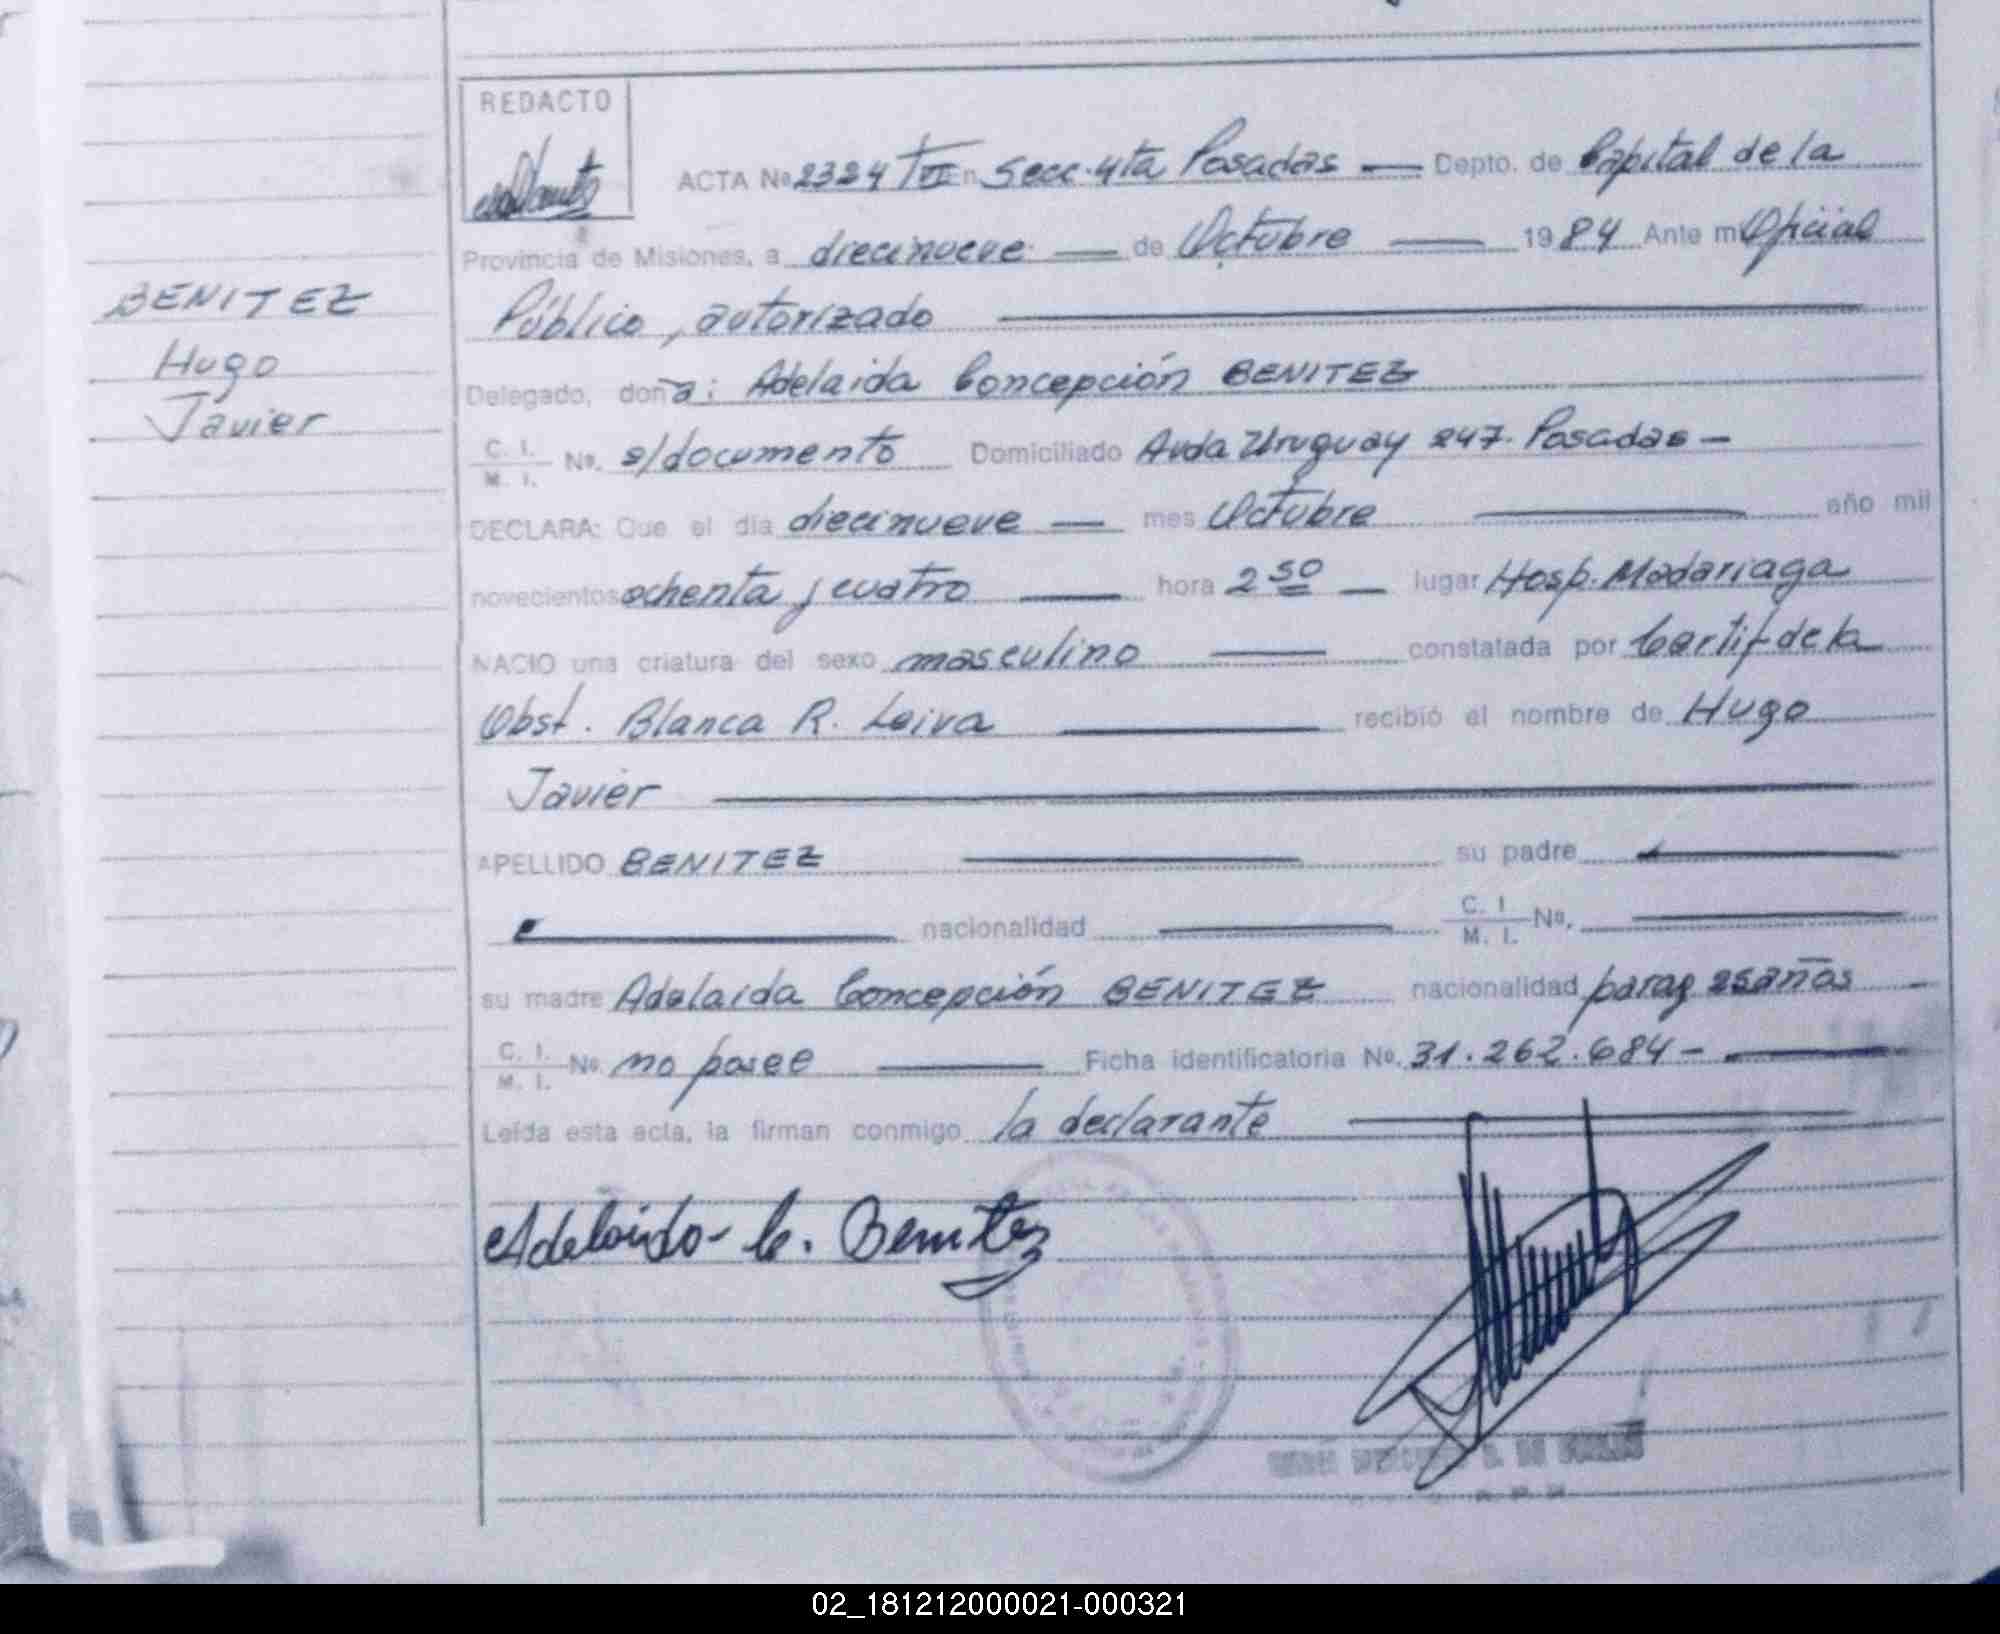 REDACTO
ACTA Nº 2324 T VI En Secc. 4ta Posadas — Depto. de Capital de la
Provincia de Misiones, a diecinueve — de Octubre — 19 84 Ante mí Oficial
Público, autorizado
Delegado, doña: Adelaida Concepción BENITEZ
C. I.
M. I. Nº. s/documento Domiciliado Avda Uruguay 247. Posadas —
DECLARA: Que el día diecinueve — mes Octubre — año mil
novecientos ochenta y cuatro — hora 2 50 — lugar Hosp. Madariaga
NACIO una criatura del sexo masculino — constatada por Certif de la
Obst. Blanca R. Leiva — recibió el nombre de Hugo
Javier
APELLIDO BENITEZ — su padre —
— nacionalidad — C. I.
M. I. Nº. —
su madre Adelaida Concepción BENITEZ nacionalidad parag 25 años —
C. I.
M. I. Nº. no posee — Ficha identificatoria Nº. 31.262.684 —
Leída esta acta, la firman conmigo la declarante —
Adelaida C. Benitez
BENITEZ
Hugo
Javier
02_181212000021-000321